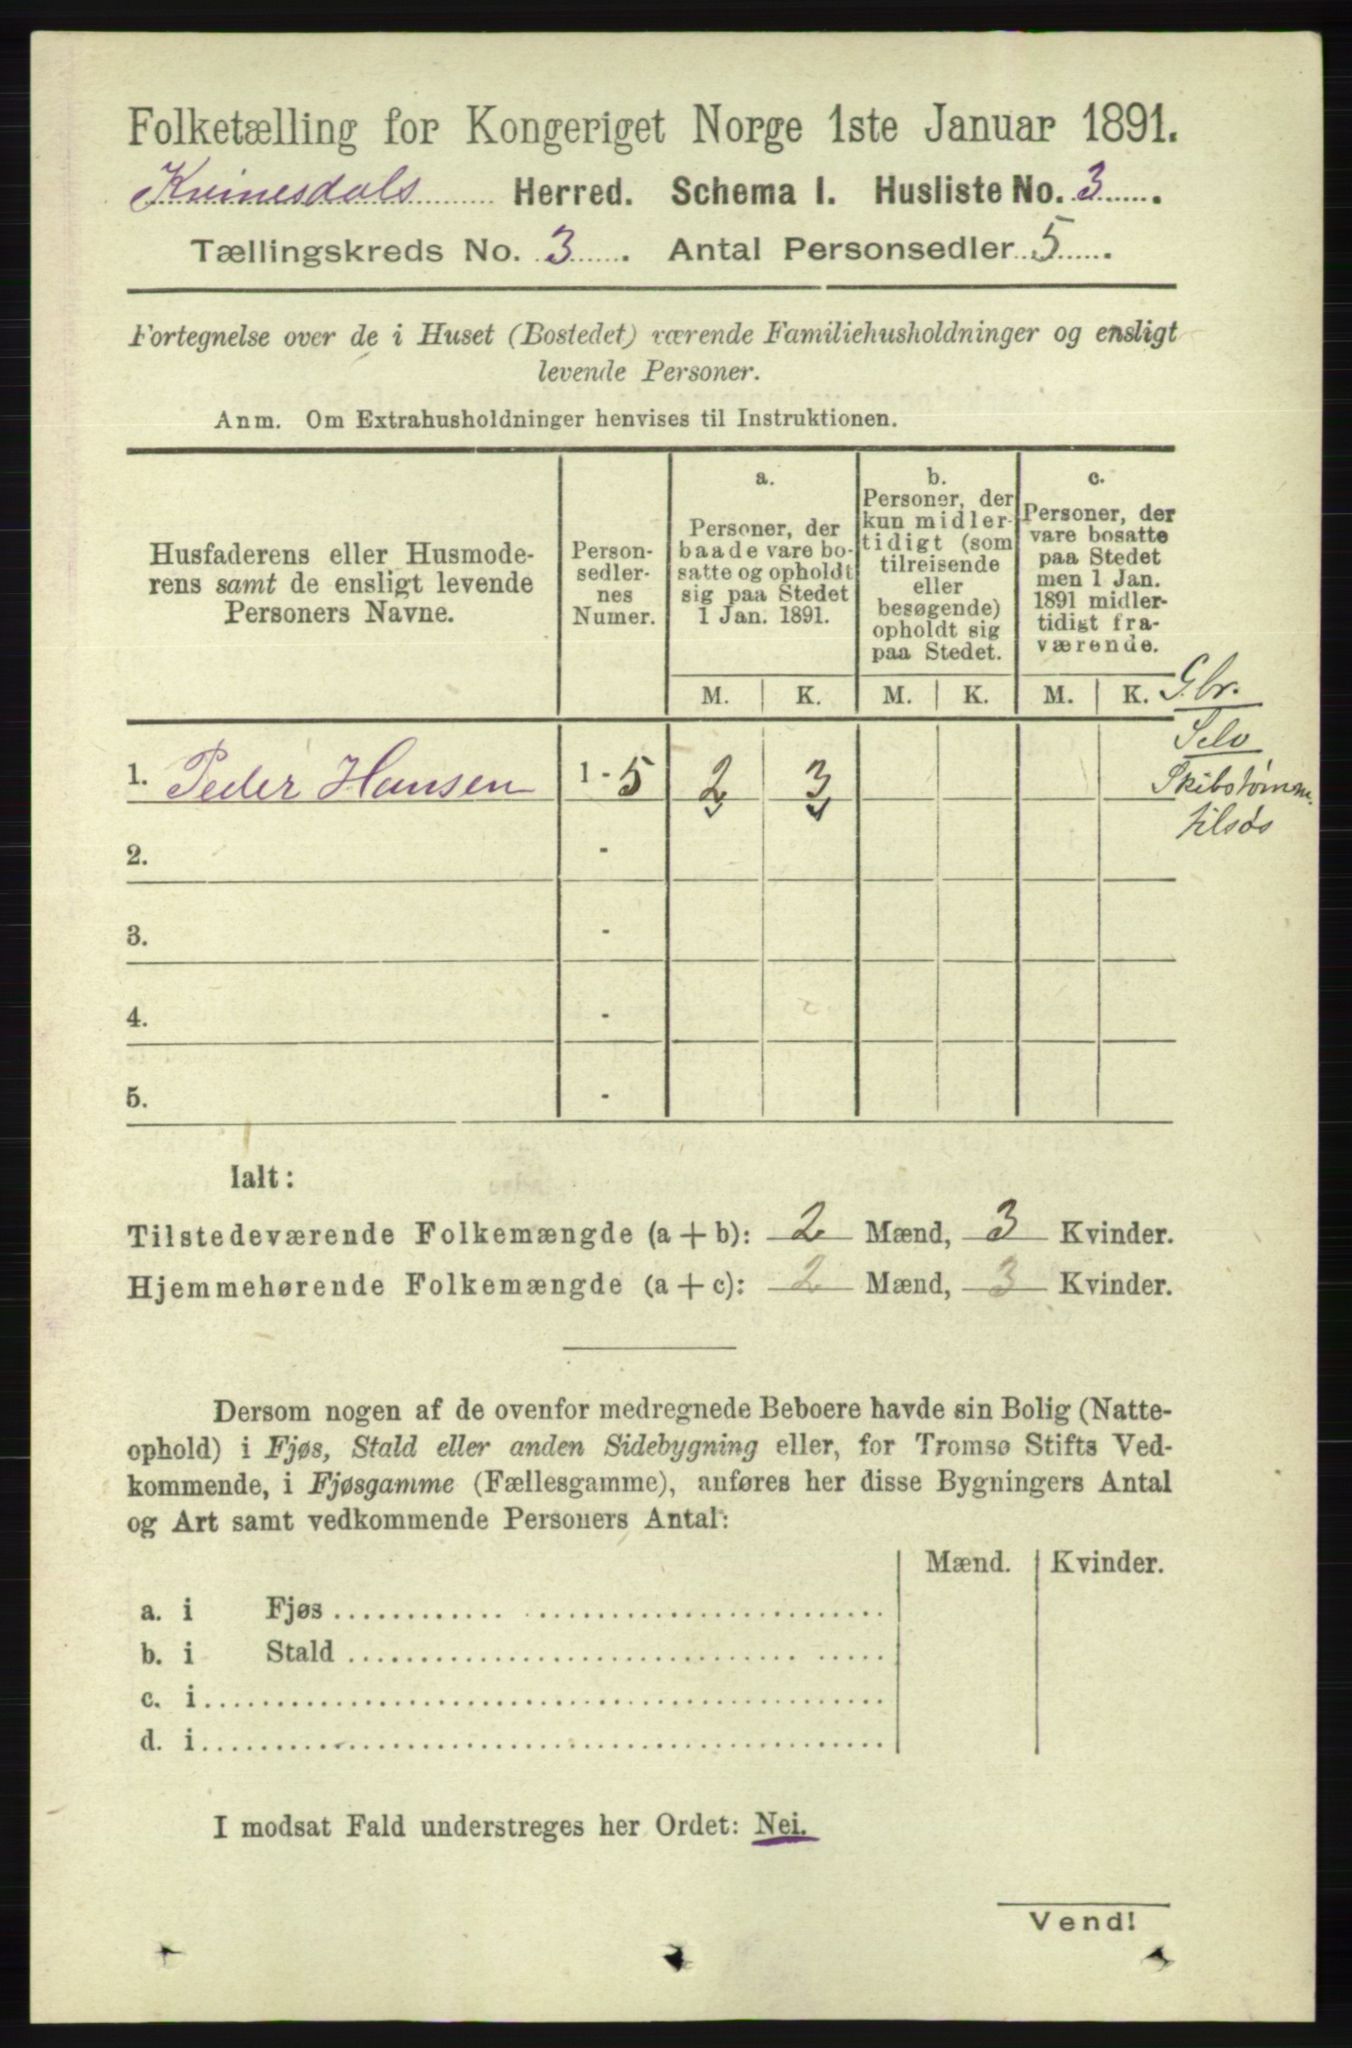 Folketælling for Kongeriget Norge 1ste Januar 1891.
Kvinesdals Herred. Schema I. Husliste No. 3.
Tællingskreds No. 3. Antal Personsedler 5.
Fortegnelse over de i Huset (Bostedet) værende Familiehusholdninger og ensligt
levende Personer.
Anm. Om Extrahusholdninger henvises til Instruktionen.
Husfaderens eller Husmode-
rens samt de ensligt levende
Personers Navne.
Person-
sedler-
nes
Numer.
a.
Personer, der
baade vare bo-
satte og opholdt
sig paa Stedet
1 Jan. 1891.
b.
Personer, der
kun midler-
tidigt (som
tilreisende
eller
besøgende)
opholdt sig
paa Stedet.
c.
Personer, der
vare bosatte
paa Stedet
men 1 Jan.
1891 midler-
tidigt fra-
værende.
M. K. M. K. M. K.
Gbr.
Selv
Skibstømm.
tilsøs
1. Peder Hansen 1 - 5 2 3
2. -
3. -
4. -
5. -
Ialt:
Tilstedeværende Folkemængde (a + b): 2 Mænd, 3 Kvinder.
Hjemmehørende Folkemængde (a + c): 2 Mænd, 3 Kvinder.
Dersom nogen af de ovenfor medregnede Beboere havde sin Bolig (Natte-
ophold) i Fjøs, Stald eller anden Sidebygning eller, for Tromsø Stifts Ved-
kommende, i Fjøsgamme (Fællesgamme), anføres her disse Bygningers Antal
og Art samt vedkommende Personers Antal:
Mænd. Kvinder.
a. i Fjøs
b. i Stald
c. i
d. i
I modsat Fald understreges her Ordet: Nei.
Vend!